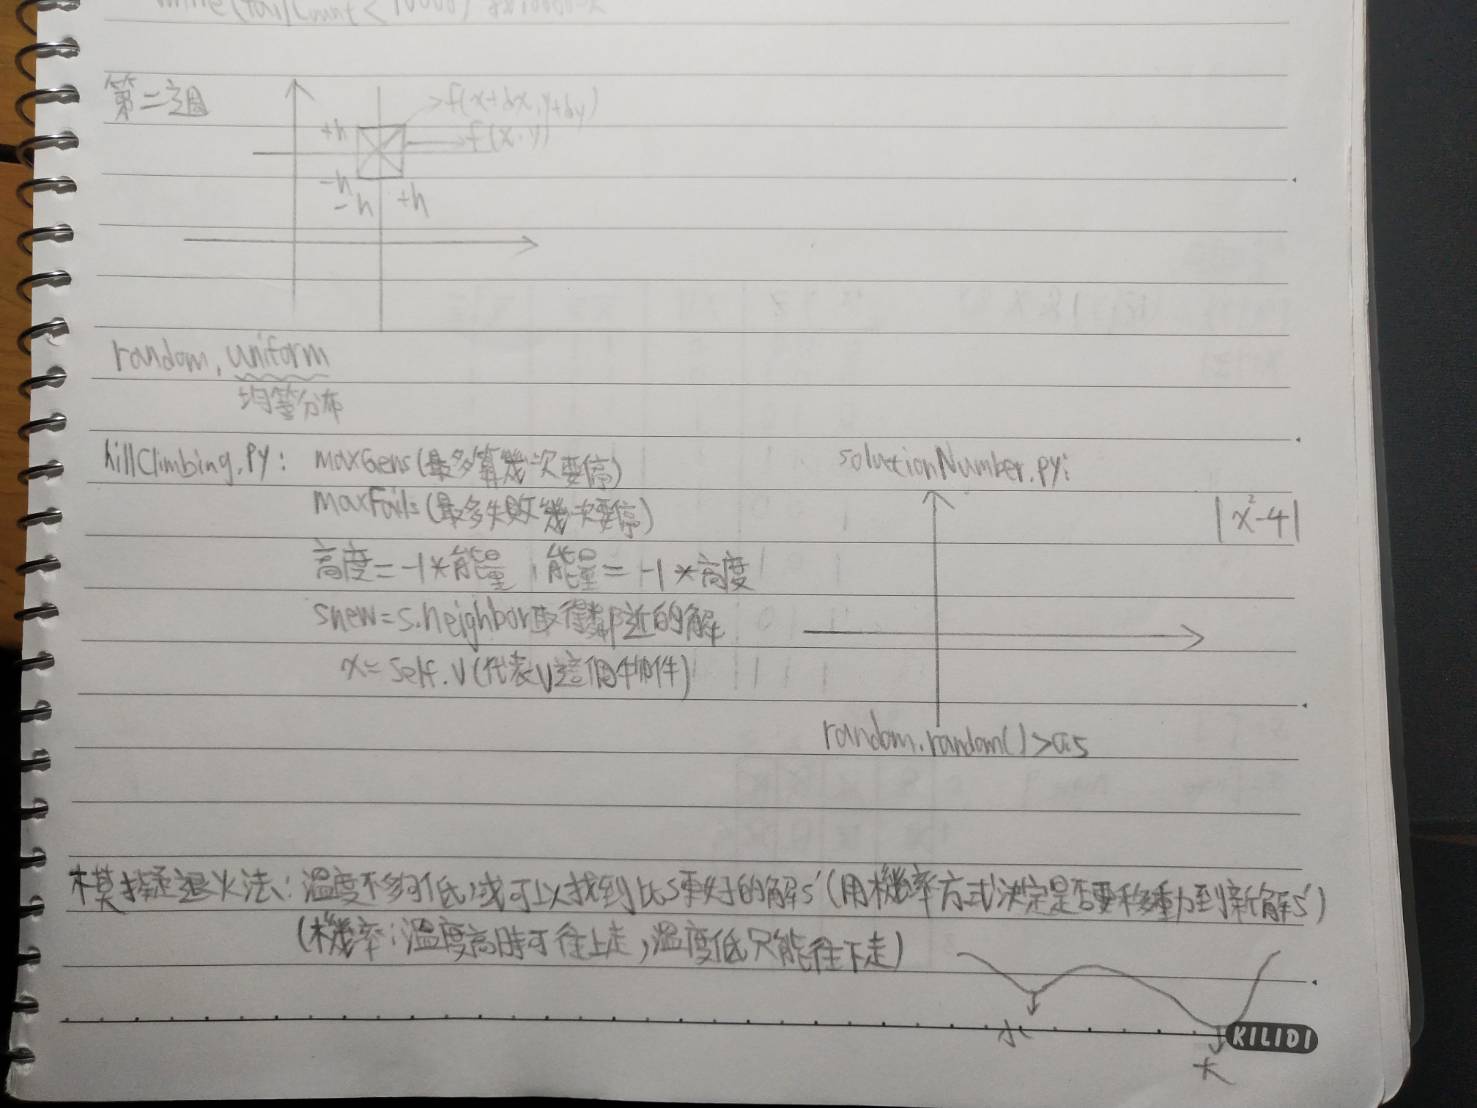 while(failCount < 10000)
第二週
f(x+dx,y+dy)
+h
f(x,y)
-h
-h +h
random, uniform
均等分布
hillClimbing.py: maxGens(最多算幾次要停)
maxFails(最多失敗幾次要停)
高度=-1*能量,能量=-1*高度
snew=s.neighbor取得鄰近的解
x=self.v(代表v這個物件)
solutionNumber.py:
|x²-4|
random.random()>0.5
模擬退火法:溫度不夠低,或可以找到比s更好的解s'(用機率方式決定是否要移動到新解s')
(機率:溫度高時可往上走,溫度低只能往下走)
小
大
KILIDI